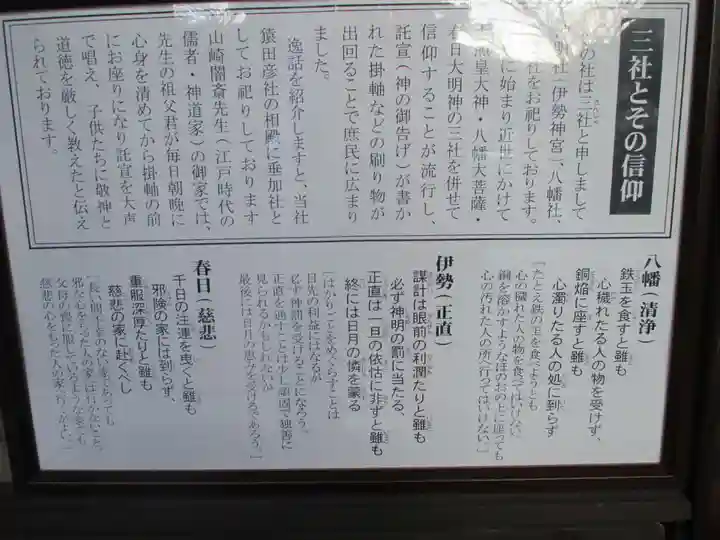 三社とその信仰
の社は三社と申しまして
明社(伊勢神宮)、八幡社、
社をお祀りしております。
に始まり近世にかけて
照皇大神・八幡大菩薩・
春日大明神の三社を併せて
信仰することが流行し、
託宣(神の御告げ)が書か
れた掛軸などの刷り物が
出回ることで庶民に広まり
ました。
逸話を紹介しますと、当社
猿田彦社の相殿に垂加社と
してお祀りしております
山崎闇斎先生(江戸時代の
儒者・神道家)の御家では、
先生の祖父君が毎日朝晩に
心身を清めてから掛軸の前
にお座りになり託宣を大声
で唱え、子供たちに敬神と
道徳を厳しく教えたと伝え
られております。
八幡(清浄)
鉄玉を食すと雖も
心穢れたる人の物を受けず、
銅焔に座すと雖も
心濁りたる人の処に到らず
「たとえ鉄の玉を食べようとも
心の穢れた人の物を食べてはいけない。
銅を溶かすようなほのおの上に座っても
心の汚れた人の所へ行ってはいけない。」
伊勢(正直)
謀計は眼前の利潤たりと雖も
必ず神明の罰に当たる、
正直は一旦の依怙に非ずと雖も
終には日月の憐を蒙る
「はかりごとをめぐらすことは
目先の利益にはなるが
必ず神罰を受けることになろう。
正直を通すことは少し頑固で独善に
見られるかもしれないが
最後には日月の恵みを受けるであろう。」
春日(慈悲)
千日の注連を曳くと雖も
邪険の家には到らず、
重服深厚たりと雖も
慈悲の家に赴くべし
「長い間しめなわの家であっても
邪な心をもった人の家には行かないこと。
父母の喪に服しているような家でも
慈悲の心をもった人の家へ行くがよい。」